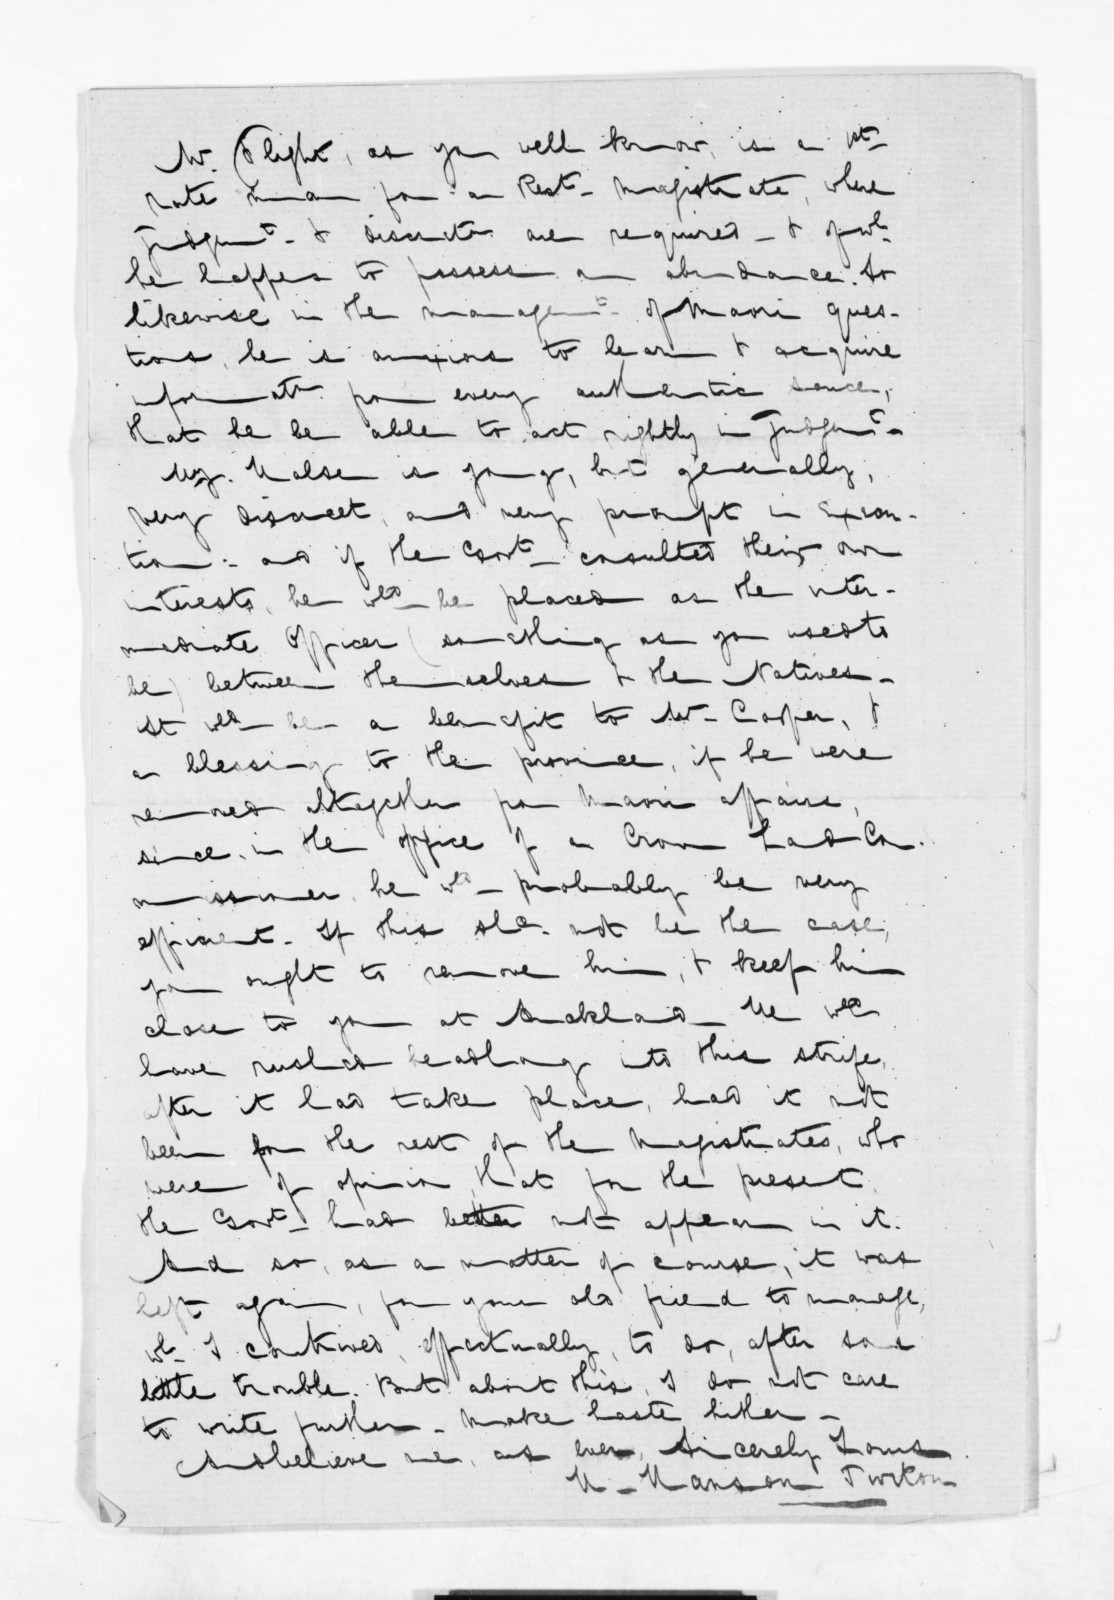 Mr. Flight, as you well know, is a 1st-
rate man for a Rest- Magistrate, where
judgmt- & discretn are required - & of wh.
he happens to possess an abundance. So
likewise in the managemt- of Maori ques-
tions, he is anxious to learn & acquire
informatn from every authentic source,
that he be able to act rightly in judgmt-
Mr. Halse is young, but generally,
very discreet, and very prompt in execu-
tion - and if the Govt- consulted their own
interests, he wld- be placed as the inter-
mediate Officer (something as you used to
be) between themselves & the Natives -
It wld- be a benefit to Mr- Cooper, &
a blessing to the province, if he were
removed altogether from Maori affairs,
since in the office of a Crown Land Com-
missioner he wld- probably be very
efficient - If this shd- not be the case,
you ought to remove him, & keep him
close to you at Auckland - He wld
have rushed headlong into this strife,
after it had take place, had it not
been for the rest of the Magistrates, who
were of opinion that for the present,
the Govt- had better not appear in it.
And so, as a matter of course, it was
left again, for your old friend to manage,
wh- I contrived, effectually, to do, after some
little trouble. But about this, I do not care
to write further - Make haste hither -
And believe me, as ever, Sincerely Yours
H- Hanson Turton